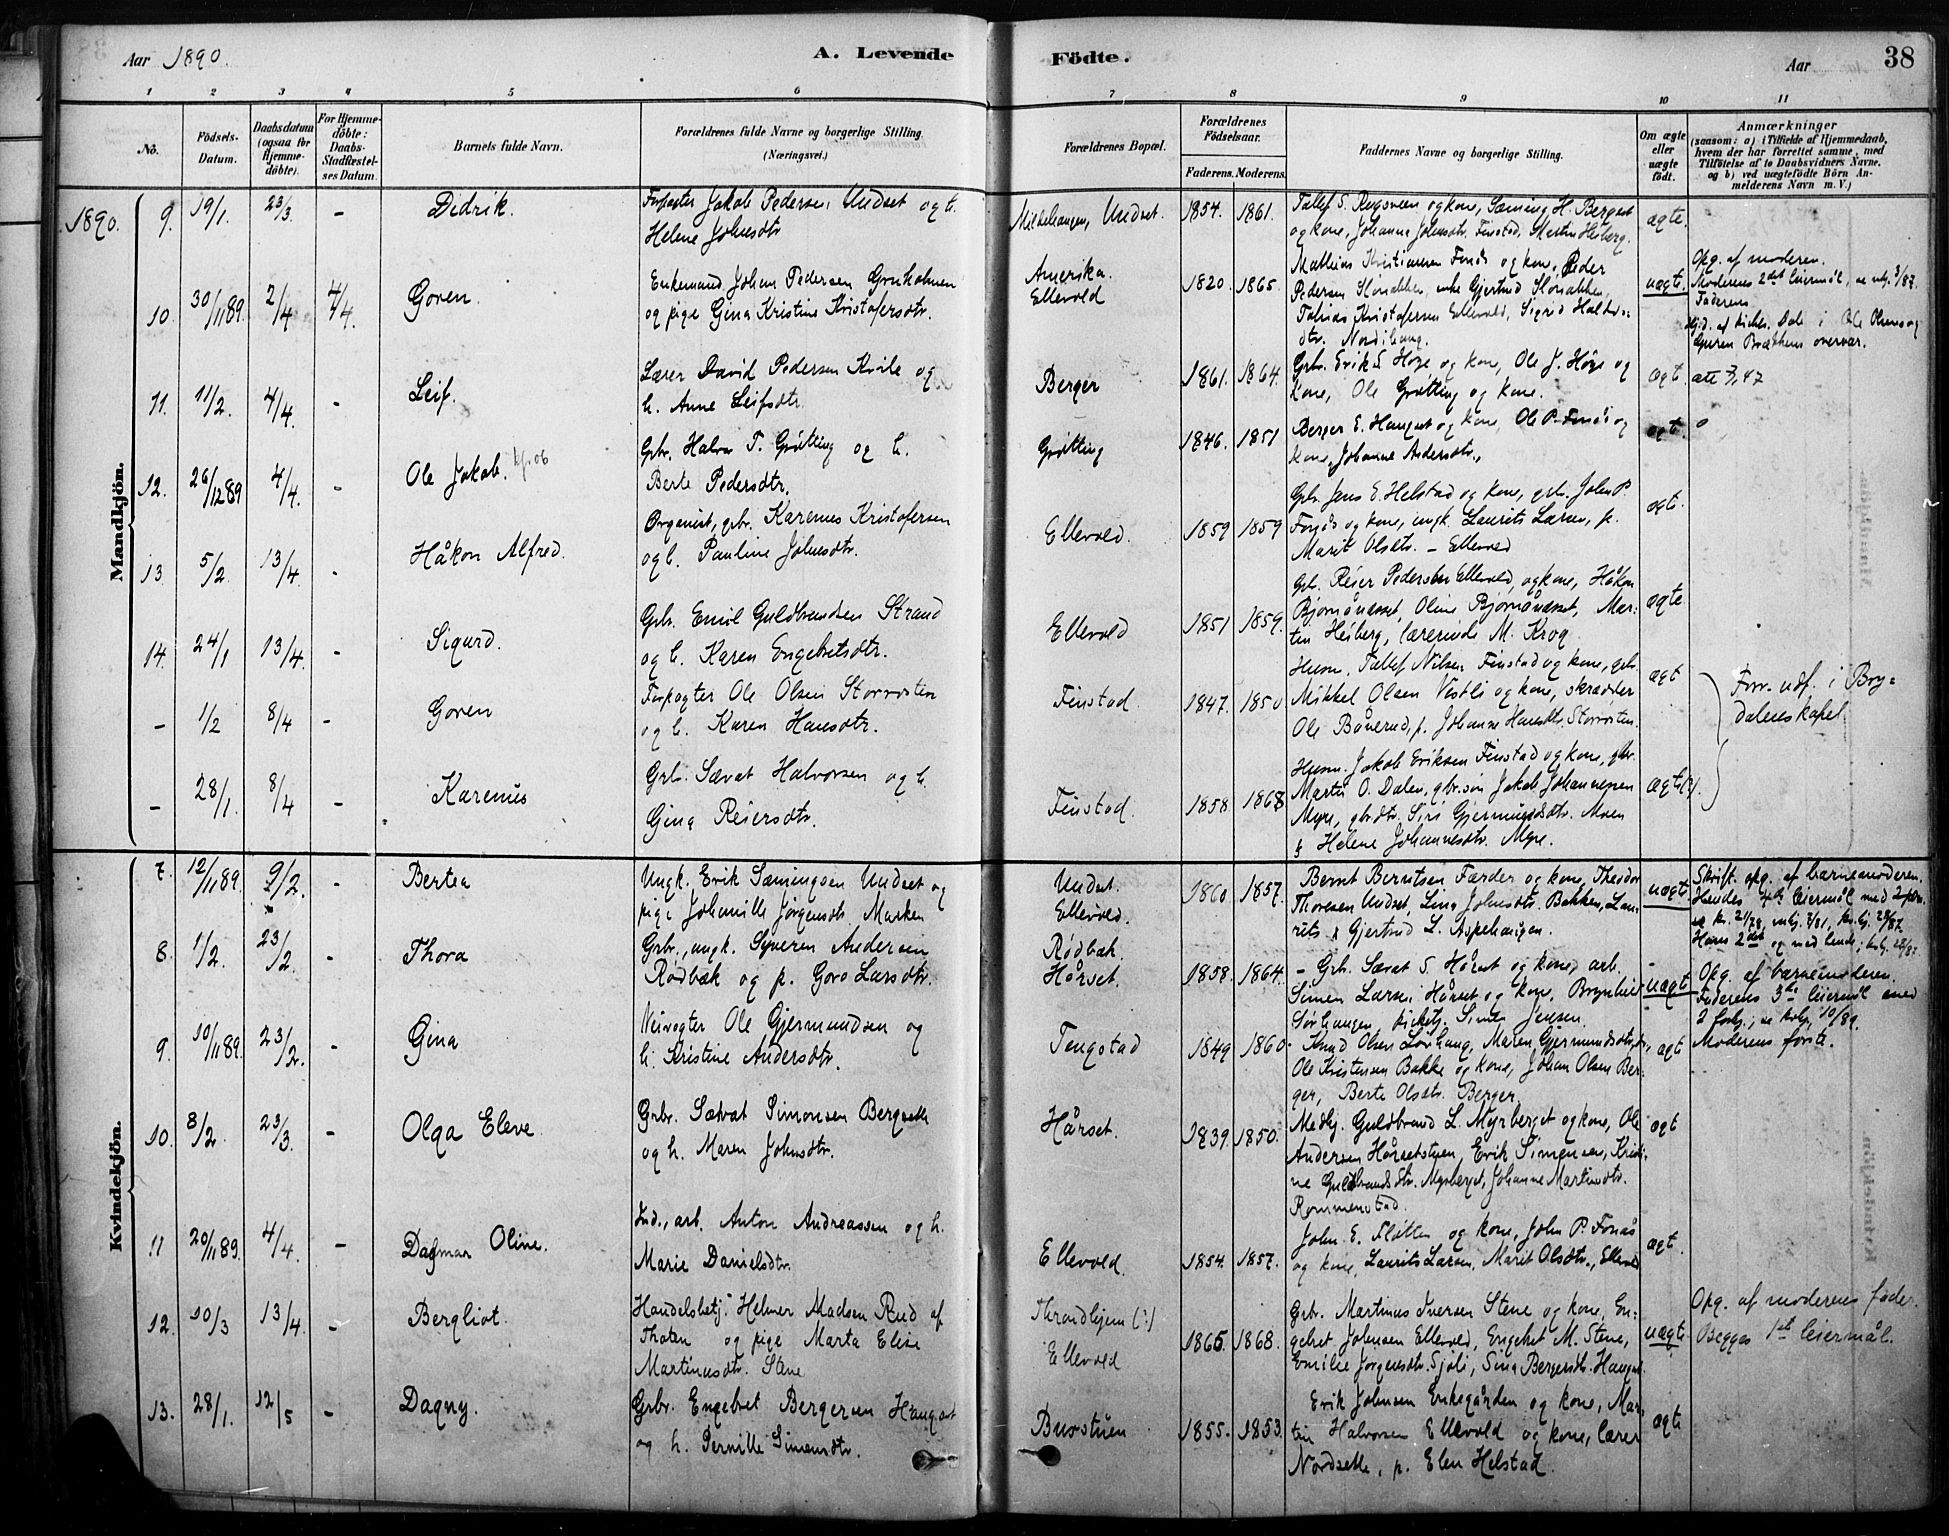 Aar 1890.
A. Levende
Födte.
Aar
38
1 2 3 4 5 6 7 8 9 10 11
No.
Födsels-
Datum.
Daabsdatum
(ogsaa for
Hjemme-
döbte).
For Hjemme-
döbte:
Daabs-
Stadfæstel-
ses Datum.
Barnets fulde Navn.
Forældrenes fulde Navne og borgerlige Stilling.
(Næringsvei.)
Forældrenes Bopæl.
Forældrenes
Födselsaar.
Faderens. Moderens.
Faddernes Navne og borgerlige Stilling.
Om ægte
eller
uægte
födt.
Anmærkninger
(saasom: a) i Tilfælde af Hjemmedaab,
hvem der har forrettet samme, med
Tilföielse af to Daabsvidners Navne,
og b) ved uægtefödte Börn An-
melderens Navn m. V.)
Mandkjön.
1890. 9. 19/1. 23/3 - Didrik.
Forpagter Jakob Pedersen Undset og h.
Helene Johnsdtr
Mikkelhaugen, Undset. 1854. 1861.
Tollef S. Rugsveen og kone, Sæming H. Bergset
og kone, Johanne Johnsdtr. Finstad, Martin Heiberg.
ægte.
10. 30/11 89. 2/4 4/4. Goren.
Enkemand Johan Pedersen Grønholmen
og pige Gina Kristine Kristofersdtr.
Amerika.
Ellevold
1820. 1865.
Mathias Kristiansen Fonås og kone, Peder
Pedersen enke Gjertrud
Tobias Kristofersen Ellevold, Sigrid
dtr. Nordihaug.
uægt.
Opg. af moderen.
Moderens 2det leiermål, se 3/87.
Faderens
i Ole Olsens og
Guren overvær.
11. 11/2. 4/4. - Leif.
Lærer David Pedersen Kvile og
h. Anne Leifsdtr.
Berger 1861. 1864.
Grbr. Erik E. Høye og kone, Ole J. Høye og
kone, Ole Grøtting og kone.
ægt.
12. 26/12 89 4/4. - Ole Jakob.
Grbr. Halvor T. Grøtting og h.
Berte Pedersdtr.
Grøtting 1846. 1851
Berger E. Haugset og kone, Ole P. Fonås og
kone, Johanne Andersdtr.,
ægt.
13. 5/2. 13/4. - Håkon Alfred.
Organist, grbr. Karenus Kristofersen
og h. Pauline Johnsdtr.
Ellevold. 1859 1859
Grbr. Jens E. Helstad og kone, grbr. John P.
Fonås og kone, ungk. Laurits Larsen, p.
Marit Olsdtr. - Ellevold
ægt.
14. 24/1 13/4. - Sigurd.
Grbr. Emil Guldbrandsen Strand
og h. Karen Engebretsdtr.
Ellevold 1851 1859.
Grbr. Reier Pedersen Ellevold, og kone, Håkon
Bjørnånesset, Oline Bjørnånesset, Mar-
tin Heiberg, lærerinde M. Krog.
ægte
- 1/2 8/4 - Goren
Forpagter Ole Olsen Storrøsten
og h. Karen Hansdtr.
Finstad 1847. 1850
Husm. Tollef Nilsen Finstad og kone, grbr.
Mikkel Olsen Vestli og kone, skrædder
Ole Bånerud, p. Johanne Hansdtr. Storrøsten.
ægt
Forr. udf. i Bry-
dalens kapel
- 28/1. 8/4 - Karenus
Grbr. Sævat Halvorsen og h.
Gina Reiersdtr.
Finstad. 1858 1868
Husm. Jakob Eriksen Finstad og kone, grbr.
Martin O. Dalen, grbr.søn Jakob Johannesen
Myre, grbrdtr. Siri Gjermundsdtr. Moen
& Helene Johannesdtr. Myre.
ægt (?).
Kvindekjön.
7. 12/11 89. 9/2. - Bertea
Ungk. Erik Sæmingsen Undset og
pige Johnille Jørgensdtr. Marken
Undset.
Ellevold.
1860 1857.
Bernt Berntsen Færder og kone, Theodor
Thoresen Undset, Lina Johnsdtr. Bakken, Lau-
rits & Gjertrud L. Aspehaugen.
uægt.
Skrift. opg. af barnemoderen.
Hendes 4de leiermål med
8. 1/2. 23/2 - Thora
Grbr., ungk. Syveren Andersen
Rødbæk og p. Goro Larsdtr.
Rødbæk.
Hårset.
1858. 1864.
- Grb. Sævat S. Hårset og kone, arb.
Simen Larsen Hårset og kone, Brynhild
Sørhaugen, kirketj. Simen Jensen.
uægt
Opg. af barnemoderen.
Faderens 3die leiermål med
2 forsk., se 10/89.
Moderens første.
9. 10/11 89. 23/2. - Gina
Veivogter Ole Gjermundsen og
h. Kristine Andersdtr.
Tengstad 1849 1860
Knud Olsen Løvhaug, Maren Gjermundsdtr.,
Ole Kristensen Bakke og kone, Johan Olsen Ber-
ger, Berte Olsdtr. Berger.
ægt
10. 8/2. 23/3. - Olga Eleve.
Grbr. Sævat Simonsen Bergsett
og h. Maren Johnsdtr.
Hårset. 1839. 1850.
Medhj. Guldbrand L. Myrberget og kone, Ole
Andersen Hårsetstuen, Erik Simensen, Kristi-
ne Guldbrandsdtr. Myrberget, Johanne Martinsdtr.
Rommenstad.
ægt
11 20/11 89. 4/4. - Dagmar Oline.
Ind., arb. Anton Andreassen og h.
Marie Danielsdtr.
Ellevold. 1854. 1857.
John E. Fløtten og kone, John P. Fonås
og kone, Laurits Larsen, Marit Olsdtr., Ellevold
ægt.
12. 10/3 13/4. - Bergliot.
Handelsbetj. Helmer Madsen Rud af
Thoten og pige Marta Elise
Martinusdtr. Stene
Throndhjem (?)
Ellevold
1865 1868.
Grbr. Martinus Iversen Stene og kone, En-
gebret Johnsen Ellevold, Engebet M. Stene,
Emilie Jørgensdtr. Sjøli, Sina Bergersdtr. Haugset
uægte
Opg. af moderens fader.
Begges 1st leiermål.
13. 28/1. 12/5 - Dagny.
Grbr. Engebret Bergersen Haugset
og h. Pernille Simensdtr.
Burstuen 1855. 1853.
Erik Johnsen Enkegården og kone, Mar-
tin Halvorsen Ellevold og kone, lærer
Nordsette, p. Elen Helstad.
ægte